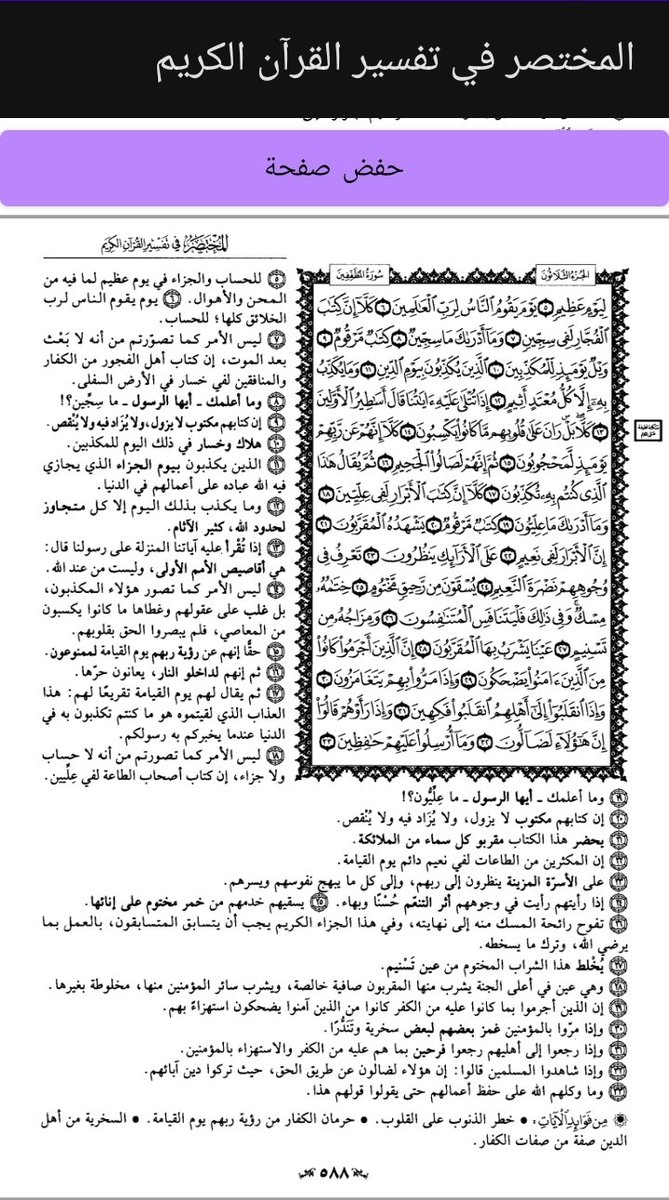 المختصر في تفسير القرآن الكريم
حفض صفحة
المختصر في تفسير القرآن الكريم
الجزء الثلاثون
سورة المطففين
لِيَوْمٍ عَظِيمٍ ٥ يَوْمَ يَقُومُ النَّاسُ لِرَبِّ الْعَالَمِينَ ٦ كَلَّا إِنَّ كِتَابَ
الْفُجَّارِ لَفِي سِجِّينٍ ٧ وَمَا أَدْرَاكَ مَا سِجِّينٌ ٨ كِتَابٌ مَرْقُومٌ ٩
وَيْلٌ يَوْمَئِذٍ لِلْمُكَذِّبِينَ ١٠ الَّذِينَ يُكَذِّبُونَ بِيَوْمِ الدِّينِ ١١ وَمَا يُكَذِّبُ
بِهِ إِلَّا كُلُّ مُعْتَدٍ أَثِيمٍ ١٢ إِذَا تُتْلَى عَلَيْهِ آيَاتُنَا قَالَ أَسَاطِيرُ الْأَوَّلِينَ
١٣ كَلَّا بَلْ رَانَ عَلَى قُلُوبِهِمْ مَا كَانُوا يَكْسِبُونَ ١٤ كَلَّا إِنَّهُمْ عَنْ رَبِّهِمْ
يَوْمَئِذٍ لَمَحْجُوبُونَ ١٥ ثُمَّ إِنَّهُمْ لَصَالُوا الْجَحِيمِ ١٦ ثُمَّ يُقَالُ هَذَا
الَّذِي كُنْتُمْ بِهِ تُكَذِّبُونَ ١٧ كَلَّا إِنَّ كِتَابَ الْأَبْرَارِ لَفِي عِلِّيِّينَ ١٨
وَمَا أَدْرَاكَ مَا عِلِّيُّونَ ١٩ كِتَابٌ مَرْقُومٌ ٢٠ يَشْهَدُهُ الْمُقَرَّبُونَ ٢١
إِنَّ الْأَبْرَارَ لَفِي نَعِيمٍ ٢٢ عَلَى الْأَرَائِكِ يَنْظُرُونَ ٢٣ تَعْرِفُ فِي
وُجُوهِهِمْ نَضْرَةَ النَّعِيمِ ٢٤ يُسْقَوْنَ مِنْ رَحِيقٍ مَخْتُومٍ ٢٥ خِتَامُهُ
مِسْكٌ وَفِي ذَلِكَ فَلْيَتَنَافَسِ الْمُتَنَافِسُونَ ٢٦ وَمِزَاجُهُ مِنْ
تَسْنِيمٍ ٢٧ عَيْنًا يَشْرَبُ بِهَا الْمُقَرَّبُونَ ٢٨ إِنَّ الَّذِينَ أَجْرَمُوا كَانُوا
مِنَ الَّذِينَ آمَنُوا يَضْحَكُونَ ٢٩ وَإِذَا مَرُّوا بِهِمْ يَتَغَامَزُونَ ٣٠
وَإِذَا انْقَلَبُوا إِلَى أَهْلِهِمُ انْقَلَبُوا فَكِهِينَ ٣١ وَإِذَا رَأَوْهُمْ قَالُوا
إِنَّ هَؤُلَاءِ لَضَالُّونَ ٣٢ وَمَا أُرْسِلُوا عَلَيْهِمْ حَافِظِينَ ٣٣
٥ للحساب والجزاء في يوم عظيم لما فيه من
المحن والأهوال. ٦ يوم يقوم الناس لرب
الخلائق كلها؛ للحساب.
٧ ليس الأمر كما تصوّرتم من أنه لا بَعْث
بعد الموت، إن كتاب أهل الفجور من الكفار
والمنافقين لفي خسار في الأرض السفلى.
٨ وما أعلمك ـ أيها الرسول ـ ما سِجِّين؟!
٩ إن كتابهم مكتوب لا يزول، ولا يُزاد فيه ولا يُنْقص.
١٠ هلاك وخسار في ذلك اليوم للمكذبين.
١١ الذين يكذبون بيوم الجزاء الذي يجازي
فيه الله عباده على أعمالهم في الدنيا.
١٢ وما يكذب بذلك اليوم إلا كل متجاوز
لحدود الله، كثير الآثام.
١٣ إذا تُقْرأ عليه آياتنا المنزلة على رسولنا قال:
هي أقاصيص الأمم الأولى، وليست من عند الله.
١٤ ليس الأمر كما تصور هؤلاء المكذبون،
بل غلب على عقولهم وغطاها ما كانوا يكسبون
من المعاصي، فلم يبصروا الحق بقلوبهم.
١٥ حقًّا إنهم عن رؤية ربهم يوم القيامة لممنوعون.
١٦ ثم إنهم لداخلو النار، يعانون حرّها.
١٧ ثم يقال لهم يوم القيامة تقريعًا لهم: هذا
العذاب الذي لقيتموه هو ما كنتم تكذبون به في
الدنيا عندما يخبركم به رسولكم.
١٨ ليس الأمر كما تصورتم من أنه لا حساب
ولا جزاء، إن كتاب أصحاب الطاعة لفي عِلِّيين.
١٩ وما أعلمك ـ أيها الرسول ـ ما عِلِّيُّون؟!
٢٠ إن كتابهم مكتوب لا يزول، ولا يُزَاد فيه ولا يُنْقص.
٢١ يحضر هذا الكتاب مقربو كل سماء من الملائكة.
٢٢ إن المكثرين من الطاعات لفي نعيم دائم يوم القيامة.
٢٣ على الأسرّة المزينة ينظرون إلى ربهم، وإلى كل ما يبهج نفوسهم ويسرهم.
٢٤ إذا رأيتهم رأيت في وجوههم أثر التنعّم حُسْنًا وبهاء. ٢٥ يسقيهم خدمهم من خمر مختوم على إنائها.
٢٦ تفوح رائحة المسك منه إلى نهايته، وفي هذا الجزاء الكريم يجب أن يتسابق المتسابقون، بالعمل بما
يرضي الله، وترك ما يسخطه.
٢٧ يُخْلط هذا الشراب المختوم من عين تَسْنيم.
٢٨ وهي عين في أعلى الجنة يشرب منها المقربون صافية خالصة، ويشرب سائر المؤمنين منها، مخلوطة بغيرها.
٢٩ إن الذين أجرموا بما كانوا عليه من الكفر كانوا من الذين آمنوا يضحكون استهزاءً بهم.
٣٠ وإذا مرّوا بالمؤمنين غمز بعضهم لبعض سخرية وتَنَدُّرًا.
٣١ وإذا رجعوا إلى أهليهم رجعوا فرحين بما هم عليه من الكفر والاستهزاء بالمؤمنين.
٣٢ وإذا شاهدوا المسلمين قالوا: إن هؤلاء لضالون عن طريق الحق، حيث تركوا دين آبائهم.
٣٣ وما وكلهم الله على حفظ أعمالهم حتى يقولوا قولهم هذا.
من فوائد الآيات: • خطر الذنوب على القلوب. • حرمان الكفار من رؤية ربهم يوم القيامة. • السخرية من أهل
الدين صفة من صفات الكفار.
٥٨٨